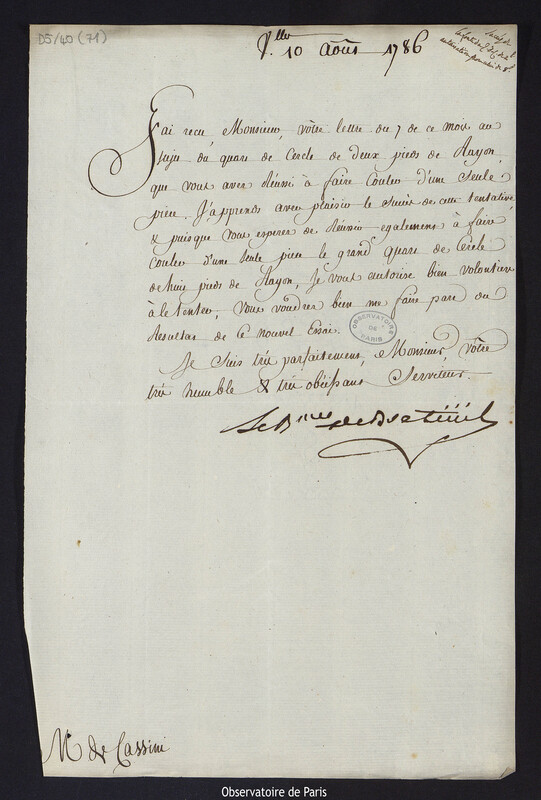 D5/40 (71)
V.lles 10 Août 1786
J'ai reçu, Monsieur, vôtre lettre du 7 de ce mois au
sujet du quart de Cercle de deux pieds de Rayon,
que vous avez Réussi à faire Couler d'une Seule
piece. J'apprends avec plaisir le Succès de cette tentative,
& puisque vous esperez de Réussir egalement à faire
Couler d'une Seule piece le grand Quart de Cercle
de huit pieds de Rayon, Je vous autorise bien volontiers
à le tenter, Vous voudrez bien me faire part du
Résultat de Ce nouvel Essai.
OBSERVATOIRE DE PARIS
Je Suis très parfaitement, Monsieur, Vôtre
très humble & très obéissant Serviteur.
Le B.on de Breteüil
M de Cassini
Observatoire de Paris